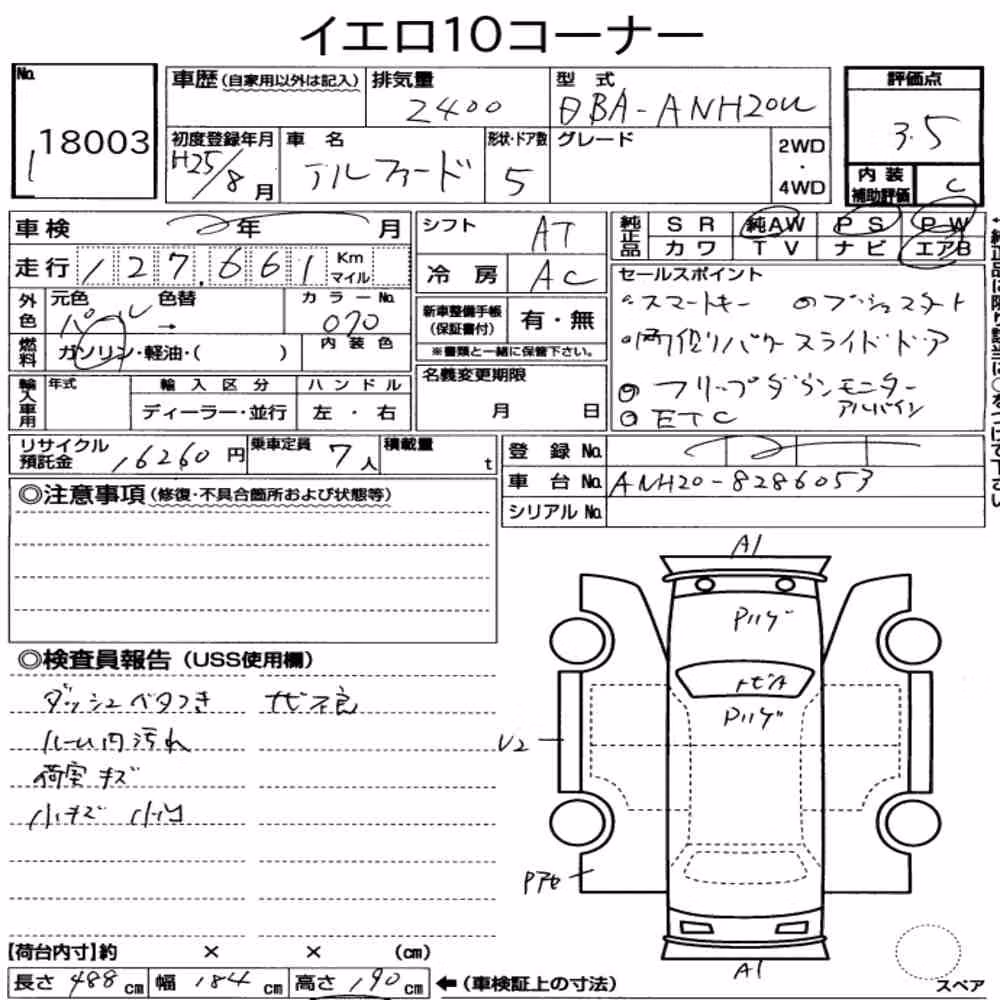 イエロ10コーナー
No. 18003
1
車歴(自家用以外は記入) 排気量 2400 型式 DBA-ANH20W
初度登録年月 H25/8月 車名 アルファード 形状・ドア数 5 グレード 2WD・4WD
評価点 3.5
内装補助評価 C
車検 年 月
走行 127,661 Km マイル
シフト AT
冷房 AC
純正品 SR 純AW PS PW
カワ TV ナビ エアB
外色 元色 パール 色替 → カラーNo. 070
燃料 ガソリン・軽油・( ) 内装色
新車整備手帳(保証書付) 有・無
※書類と一緒に保管下さい。
セールスポイント
○スマートキー ○プッシュスタート
○両側パワースライドドア
○フリップダウンモニター
アルパイン
○ETC
輸入車用 年式 輸入区分 ハンドル
ディーラー・並行 左・右
名義変更期限
月 日
リサイクル預託金 16260円 乗車定員 7人 積載量 t
登録No.
車台No. ANH20-8286053
シリアルNo.
◎注意事項(修復・不具合箇所および状態等)
◎検査員報告(USS使用欄)
ダッシュベタつき ナビ不良
ルーム内汚れ
荷室キズ
小キズ 小凹
A1
Pハゲ
トビA
Pハゲ
U2
Pアセ
A1
スペア
【荷台内寸】約 × × (cm)
長さ 488cm 幅 184cm 高さ 190cm ←(車検証上の寸法)